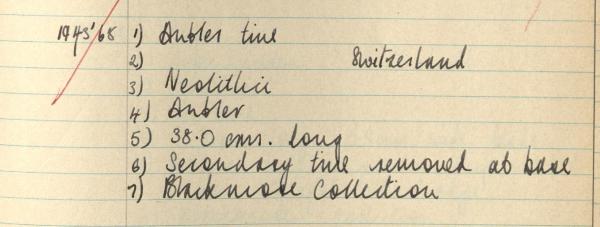 1943'68 1) Antler tine
2) Switzerland
3) Neolithic
4) Antler
5) 38.0 cms. long
6) Secondary tine removed at base
7) Blackmore Collection